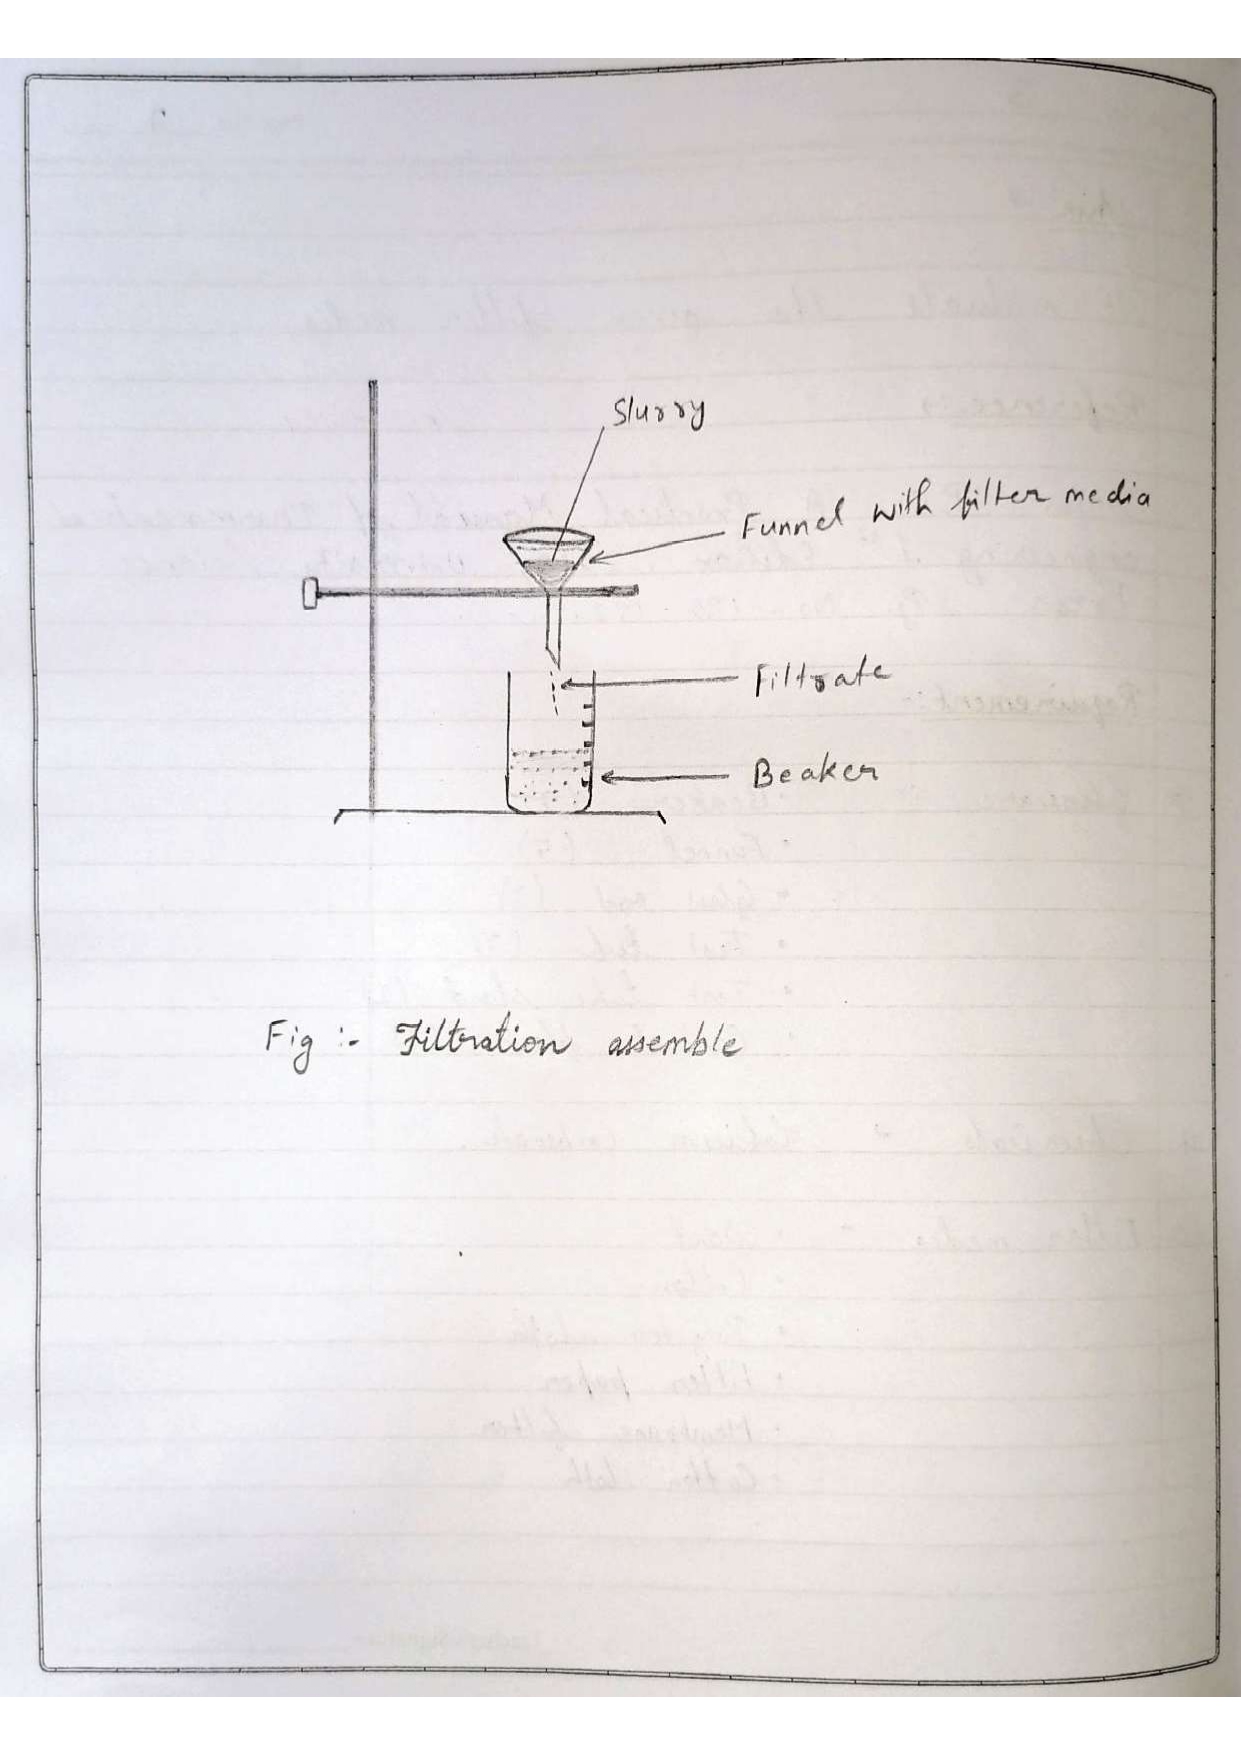 Slurry
Funnel with filter media
Filtrate
Beaker
Fig :- Filtration assemble